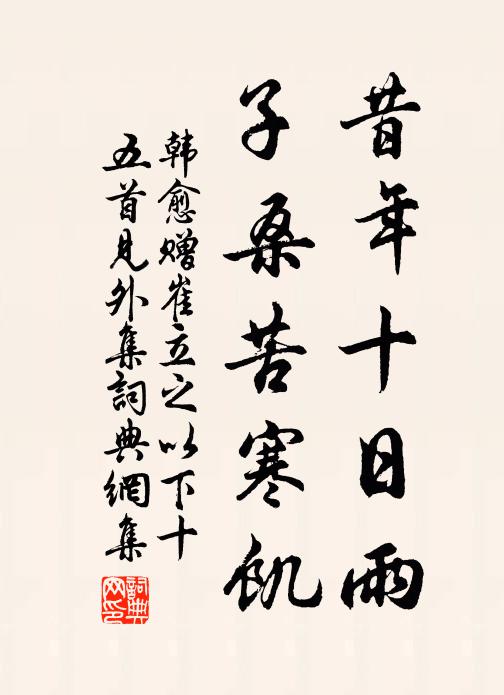 昔年十日雨
子桑苦寒飢
韩愈赠崔立之以下十
五首見外集詞典網集
詞典网印